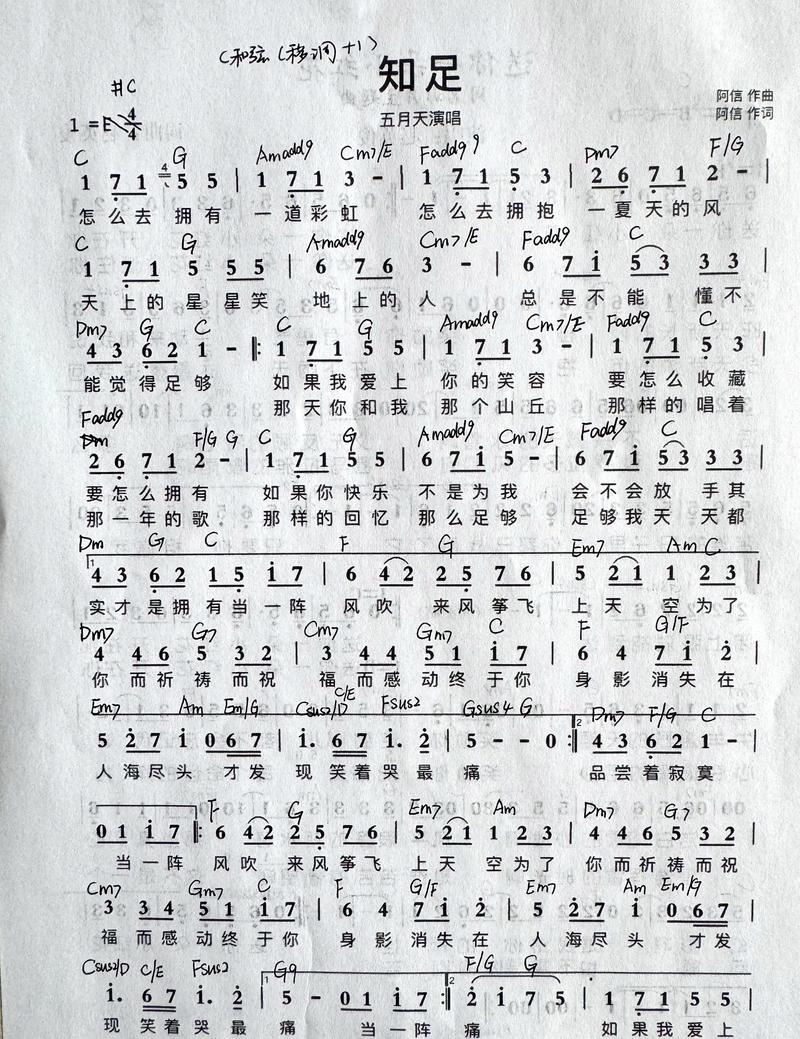 (和弦(移调+1)
知足
#C
1=E 4/4
五月天演唱
阿信 作曲
阿信 作词
C G Amadd9 Cm7/E Fadd9 C Dm7 F/G
1 7 1 5 5 | 1 7 1 3 - | 1 7 1 5 3 | 2 6 7 1 2 - |
怎么去拥有 一道彩虹 怎么去拥抱 一夏天的风
C G Amadd9 Cm7/E Fadd9 C
1 7 1 5 5 5 | 6 7 6 3 - | 6 7 1 5 3 3 3 |
天上的星星笑 地上的人 总是不能 懂不
Dm7 G C C G Amadd9 Cm7/E Fadd9 C
4 3 6 2 1 - ‖: 1 7 1 5 5 | 1 7 1 3 - | 1 7 1 5 3 |
能觉得足够 如果我爱上 你的笑容 要怎么收藏
那天你和我 那个山丘 那样的唱着
Fadd9
Dm F/G G C G Amadd9 Cm7/E Fadd9 C
2 6 7 1 2 - | 1 7 1 5 5 | 6 7 1 5 - | 6 7 1 5 3 3 3 |
要怎么拥有 如果你快乐 不是为我 会不会放 手其
那一年的歌 那样的回忆 那么足够 足够我天 天都
Dm G C F G Em7 Am C
1
4 3 6 2 1 5 1 7 | 6 4 2 2 5 7 6 | 5 2 1 1 2 3 |
实才是拥有当一阵 风吹 来风筝飞 上天 空为了
Dm7 G7 Cm7 Gm7 C F G/F
4 4 6 5 3 2 | 3 4 4 5 1 1 7 | 6 4 7 1 2 |
你而祈祷而祝 福而感动终于你 身影消失在
Em7 Am Em/G Csus2/D C/E Fsus2 Gsus4 G Dm7 F/G C
5 2 7 1 0 6 7 | 1. 6 7 1. 2 | 5 - - 0 :‖ 2 4 3 6 2 1 - |
人海尽头 才发 现笑着哭最痛 品尝着寂寞
F G Em7 Am Dm7 G7
0 1 1 7 ‖: 6 4 2 2 5 7 6 | 5 2 1 1 2 3 | 4 4 6 5 3 2 |
当一阵 风吹 来风筝飞 上天 空为了 你而祈祷而祝
Cm7 Gm7 C F G/F Em7 Am Em/G
3 3 4 5 1 1 7 | 6 4 7 1 2 | 5 2 7 1 0 6 7 |
福而感动终于你 身影消失在 人海尽头 才发
Csus2/D C/E Fsus2 G9 F/G G
1. 6 7 1. 2 | 1 5 - 0 1 1 7 :‖ 2 2 1 7 5 | 1 7 1 5 5 |
现笑着哭最 痛 当一阵 痛 如果我爱上